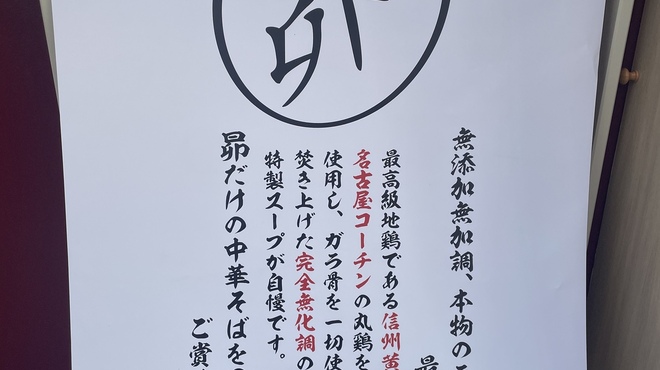 無添加無加調、本物の
最
最高級地鶏である信州黄
名古屋コーチンの丸鶏を
使用し、ガラ骨を一切使
焚き上げた完全無化調の
特製スープが自慢です。
昴だけの中華そばを
ご賞